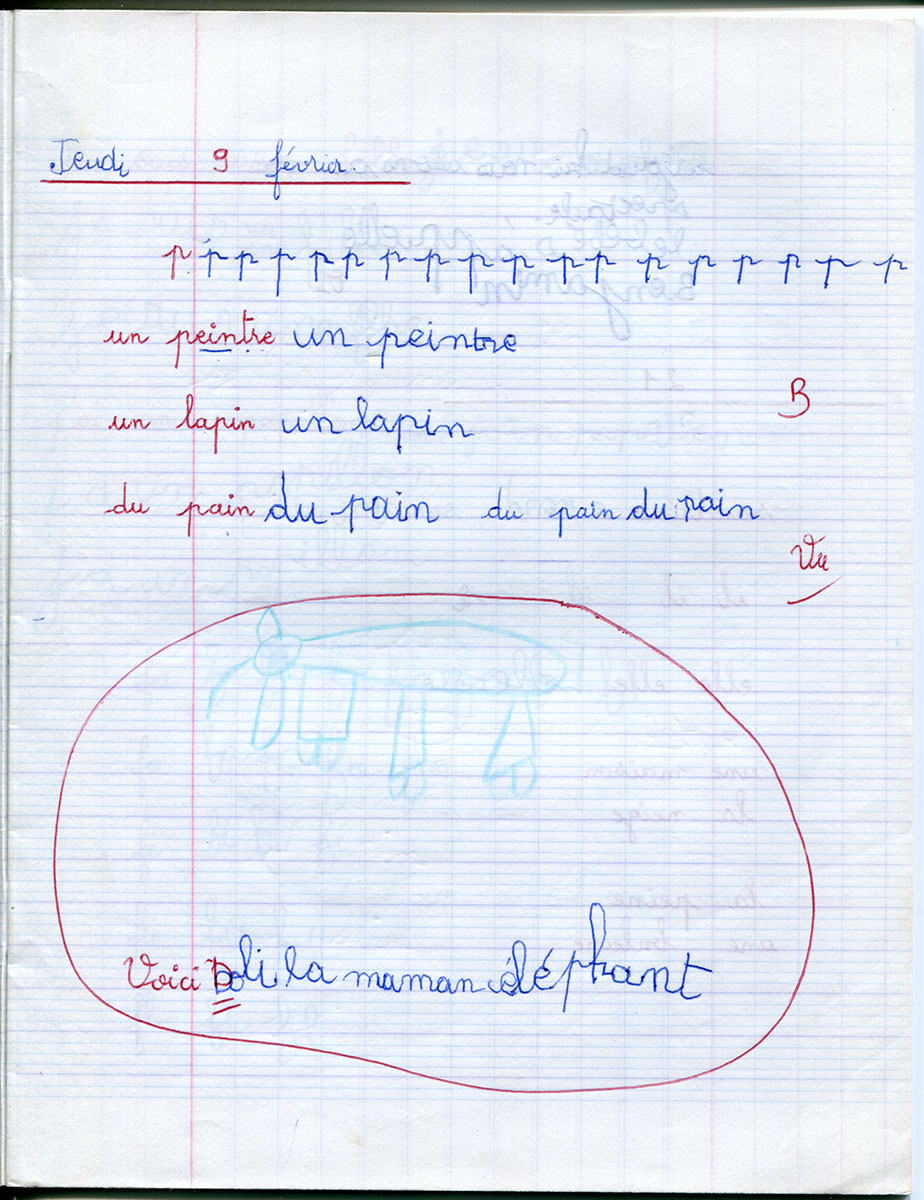 Jeudi 9 février.
p p p p p p p p p p p p p p p p p p
un peintre un peintre
B
un lapin un lapin
du pain du pain du pain du pain
Vu
Voici Doli la maman éléphant